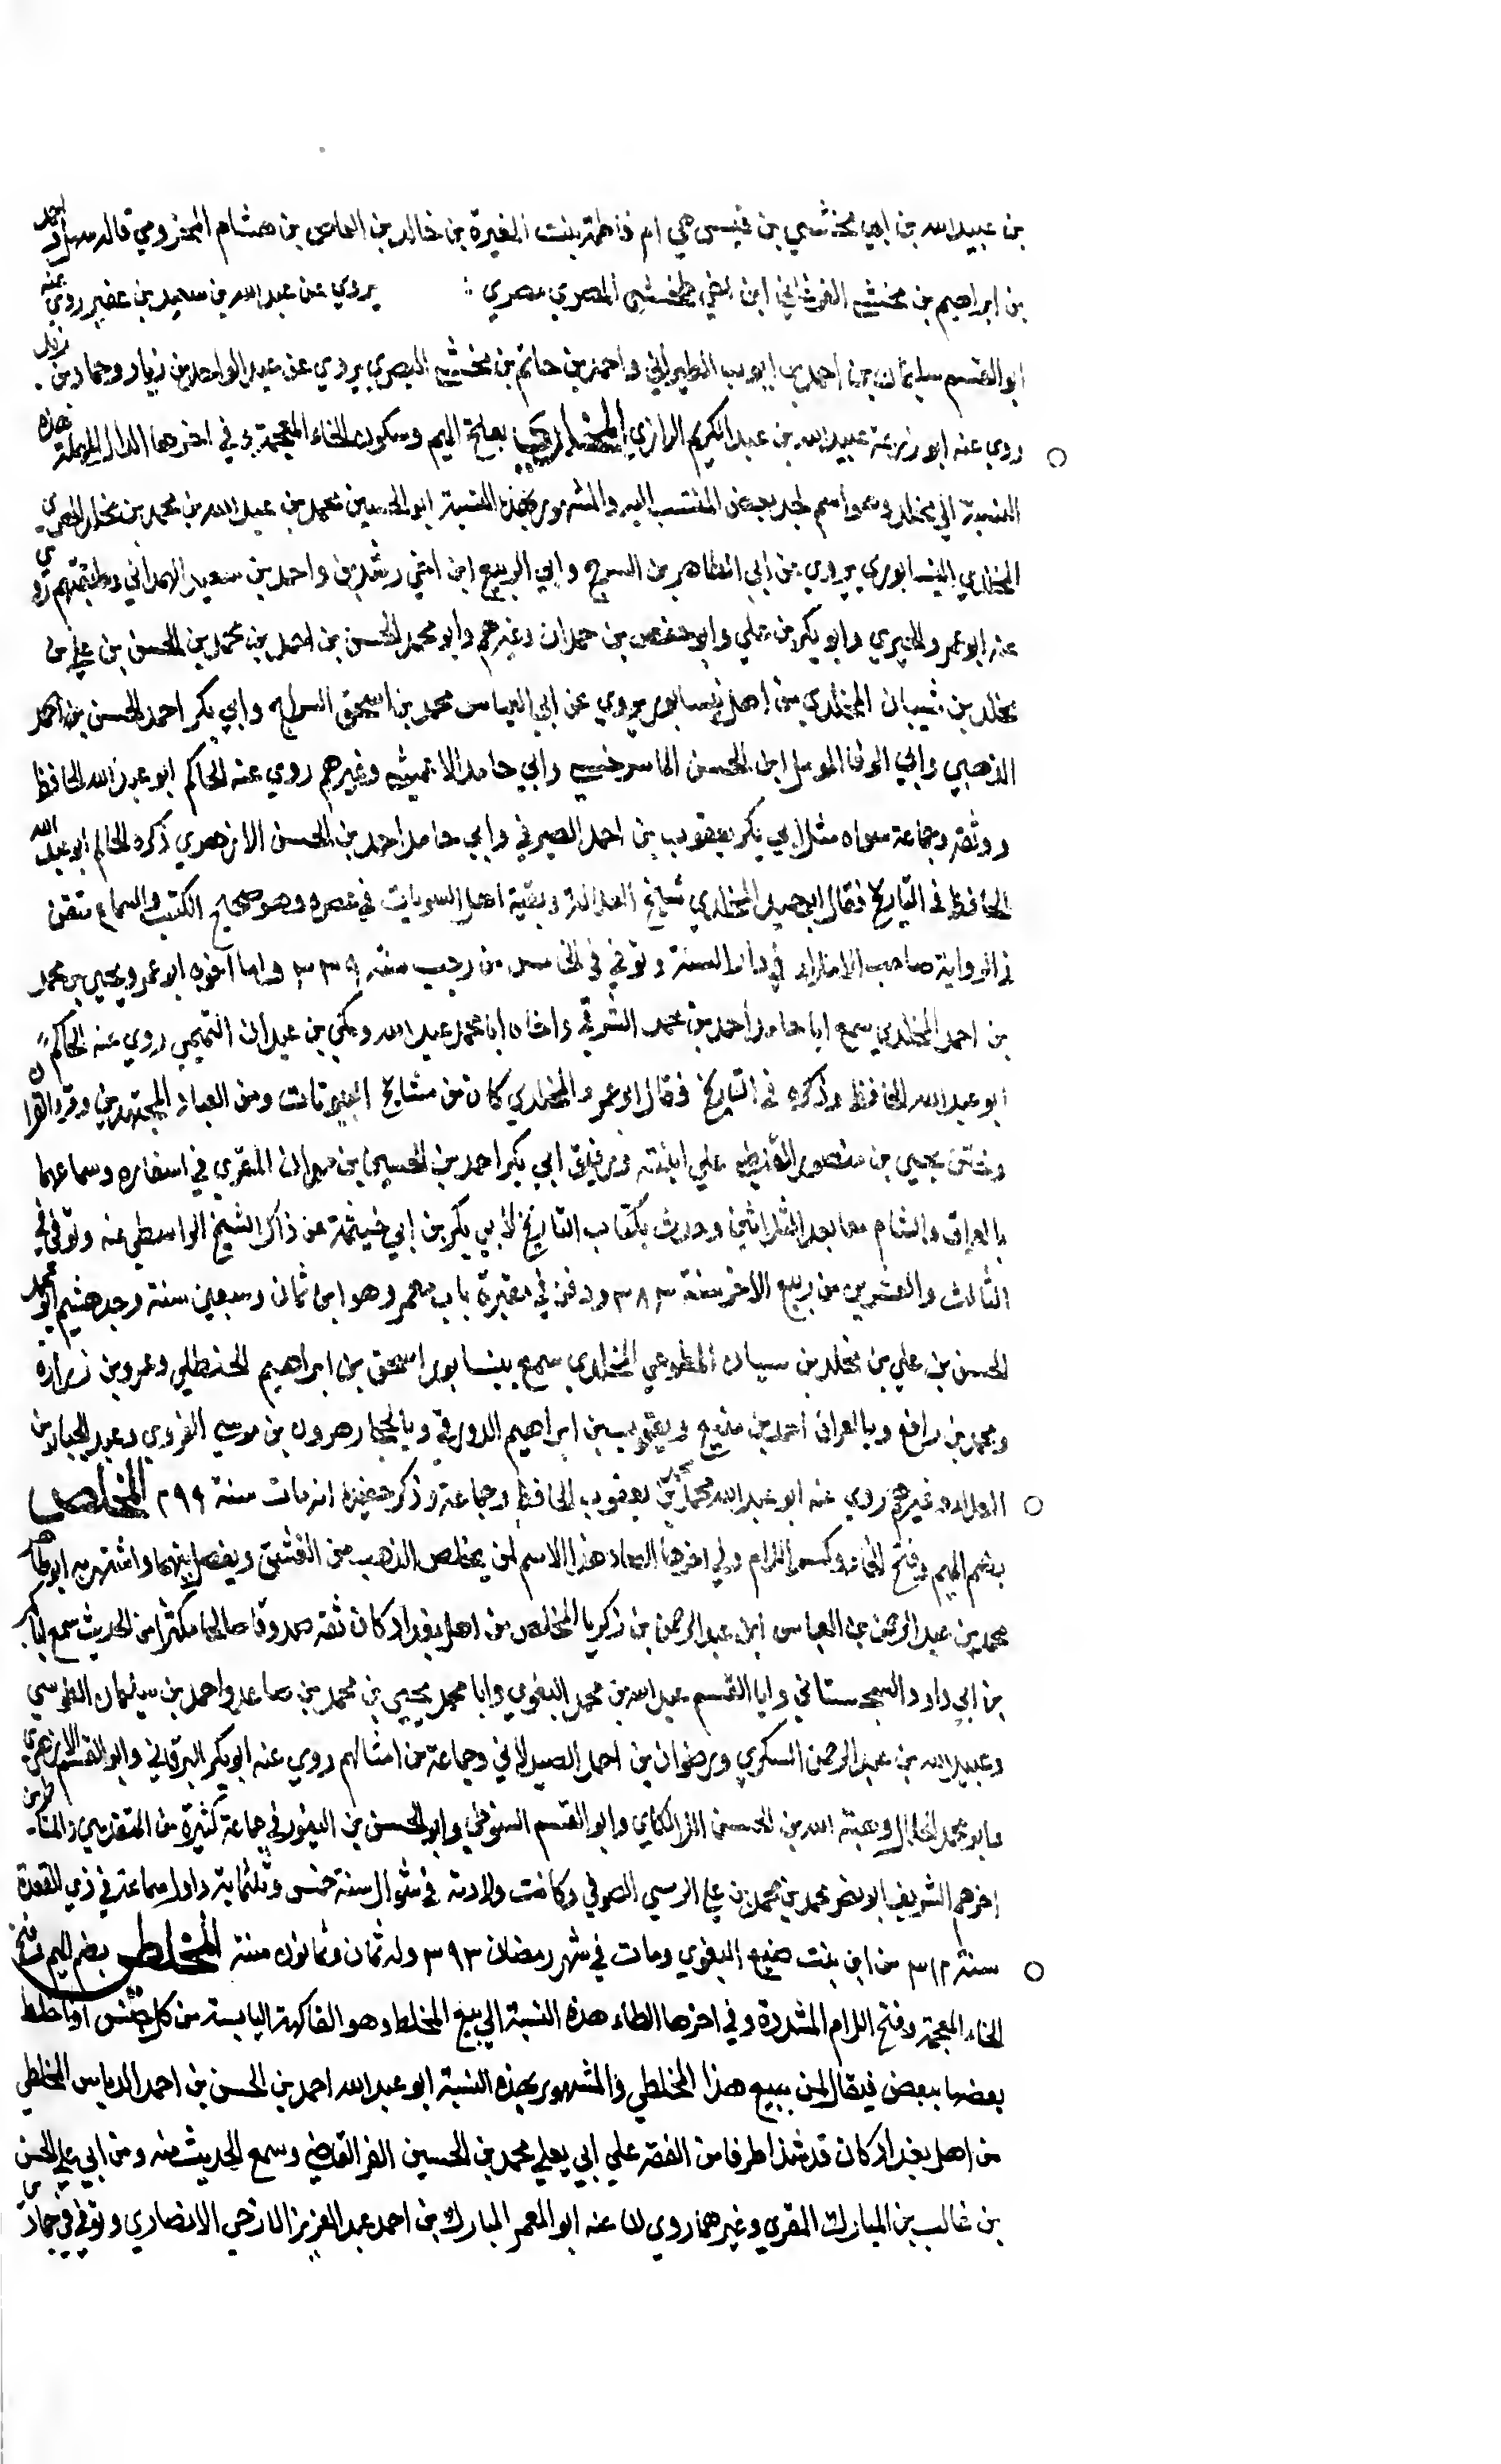 بن عبيد الله بن ابي مخشي بن قيس هي ام فاطمة بنت المغيرة بن خالد بن العاص بن هشام المخزومي قاله احمد
بن ابراهيم بن مخشي الفرغاني ابن اخي طخشي المصري مصري : يروي عن عبد الله بن سعيد بن عفير روي عنه
ابو القسم سليمان بن احمد بن ايوب الطبراني واحمد بن حاتم بن مخشي البصري يروي عن عبد الواحد بن زياد وحماد بن زيد
روي عنه ابو زرعة عبيد الله بن عبد الكريم الرازي المخلدي بفتح الميم وسكون الخاء المعجمة وفي اخرها الدال المهملة هذه
النسبة الي مخلد وهو اسم لجد بعض المنتسب اليه والمشهور بهذه النسبة ابو الحسين محمد بن عبد الله بن محمد بن مخلد
المخلدي النيسابوري يروي عن ابي الطاهر بن السرح وابي الربيع ابن اخي رشدين واحمد بن سعيد الهمداني وطبقتهم روي
عنه ابو عمرو الحيري وابو بكر بن علي وابو حفص بن حمدان وغيرهم وابو محمد الحسن بن احمد بن محمد بن الحسن بن علي بن
مخلد بن شيبان المخلدي من اهل نيسابور يروي عن ابي العباس محمد بن اسحق السراج وابي بكر احمد الحسن بن احمد
الذهبي وابي الوفا المومل ابن الحسن الماسرخسي وابي حامد الاعمشي وغيرهم روي عنه الحاكم ابو عبد الله الحافظ
ووثقه وجماعة سواه مثل ابي بكر يعقوب بن احمد الصيرفي وابي حامد احمد بن الحسن الازهري ذكره الحاكم ابو عبد الله
الحافظ في التاريخ فقال ابو محمد المخلدي شيخ العدالة وبقية اهل البيوتات في عصره وهو صحيح الكتب والسماع متقن
في الرواية صاحب الاملاء في دار السنة وتوفي في الخامس من رجب سنة ٣٣٩ واما اخوه ابو عمرو يحيي بن محمد
بن احمد المخلدي سمع ابا حامد احمد بن محمد الشرقي واخاه ابا محمد عبد الله ومكي بن عبدان التميمي روي عنه الحاكم
ابو عبد الله الحافظ وذكره في التاريخ فقال ابو عمرو المخلدي كان من مشايخ البيوتات ومن العباد المجتهدين وقرا القران
وختن يحيي بن منصور القاضي علي ابنته ورفيق ابي بكر احمد بن الحسين بن مهران المقري في اسفاره وسماعهما
بالعراق والشام معا بعد الثلاثين وحدث بكتاب التاريخ لابي بكر بن ابي خيثمة عن ذاكر الشيخ الواسطي عنه وتوفي في
الثالث والعشرين من ربيع الاخر سنة ٣٨٣ ودفن في مقبرة باب معمر وهو ابن ثمان وسبعين سنة وجدهم ابو محمد
الحسن بن علي بن مخلد بن سيبان المطوعي المخلدي سمع بنيسابور اسحق بن ابراهيم الحنظلي وعمرو بن زرارة
ومحمد بن رافع وبالعراق احمد بن منيع ويعقوب بن ابراهيم الدورقي وبالحجاز هرون بن موسي الفروي وعبد الجبار بن
العلاء وغيرهم روي عنه ابو عبد الله محمد بن يعقوب الحافظ وجماعة وذكر حفيده انه مات سنة ٢٩٩ المخلص
بضم الميم وفتح الخاء وكسر اللام وفي اخرها الصاد هذا الاسم لمن يخلص الذهب من الغش ويفصل بينهما واشتهر به ابو طاهر
محمد بن عبد الرحمن بن العباس ابن عبد الرحمن بن زكريا المخلص من اهل بغداد كان ثقة صدوقا صالحا مكثرا من الحديث سمع ابا بكر
بن ابي داود السجستاني وابا القسم عبد الله بن محمد البغوي وابا محمد يحيي بن محمد بن صاعد واحمد بن سليمان الطوسي
وعبيد الله بن عبد الرحمن السكري ورضوان بن احمد الصيدلاني وجماعة من امثالهم روي عنه ابو بكر البرقاني وابو القسم الازهري
وابو محمد الخلال وهبة الله بن الحسن اللالكاي وابو القسم التنوخي وابو الحسن بن النقور في جماعة كثيرة من المتقدمين والمتاخرين
اخرهم الشريف ابو نصر محمد بن محمد بن علي الزينبي الصوفي وكانت ولادته في شوال سنة خمس وثلثماية واول سماعه في ذي القعدة
سنة ٣١٢ من ابن بنت منيع البغوي ومات في شهر رمضان ٣٩٣ وله ثمان وثمانون سنة المخلطي بضم الميم وفتح
الخاء المعجمة وفتح اللام المشددة وفي اخرها الطاء هذه النسبة الي بيع المخلط وهو الفاكهة اليابسة من كل جنس اذا خلط
بعضها ببعض فيقال لمن يبيع هذا المخلطي والمشهور بهذه النسبة ابو عبد الله احمد بن الحسن بن احمد الدباس المخلطي
من اهل بغداد كان قد شدا طرفا من الفقه علي ابي يعلي محمد بن الحسين الفرا القاضي وسمع الحديث منه ومن ابي علي الحسن
بن غالب بن المبارك المقري وغيرهما روي لنا عنه ابو المعمر المبارك بن احمد عبد العزيز الازجي الانصاري وتوفي في جمادي